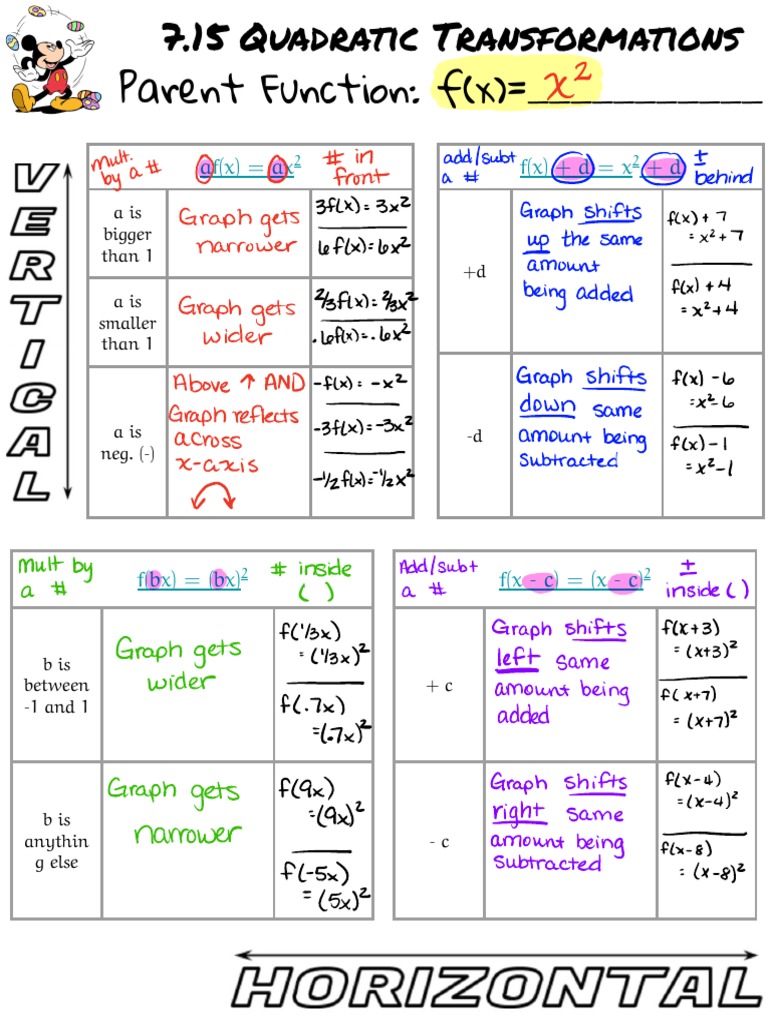 7.15 Quadratic Transformations
Parent Function: f(x)= x²
VERTICAL
mult. by a #
af(x) = ax²
# in front
a is bigger than 1
Graph gets narrower
3f(x) = 3x²
6f(x) = 6x²
a is smaller than 1
Graph gets wider
2/3f(x) = 2/3x²
.6f(x) = .6x²
a is neg. (-)
Above ↑ AND
Graph reflects
across
x-axis
-f(x) = -x²
-3f(x) = -3x²
-1/2f(x) = -1/2x²
add/subt a #
f(x) + d = x² + d
± behind
+d
Graph shifts
up the same
amount
being added
f(x) + 7
= x² + 7
f(x) + 4
= x² + 4
-d
Graph shifts
down same
amount being
subtracted
f(x) - 6
= x² - 6
f(x) - 1
= x² - 1
mult by a #
f(bx) = (bx)²
# inside ( )
b is
between
-1 and 1
Graph gets
wider
f(1/3x)
= (1/3x)²
f(.7x)
= (.7x)²
b is
anythin
g else
Graph gets
narrower
f(9x)
= (9x)²
f(-5x)
= (5x)²
Add/subt a #
f(x - c) = (x - c)²
± inside ( )
+ c
Graph shifts
left same
amount being
added
f(x+3)
= (x+3)²
f(x+7)
= (x+7)²
- c
Graph shifts
right same
amount being
subtracted
f(x-4)
= (x-4)²
f(x-8)
= (x-8)²
HORIZONTAL